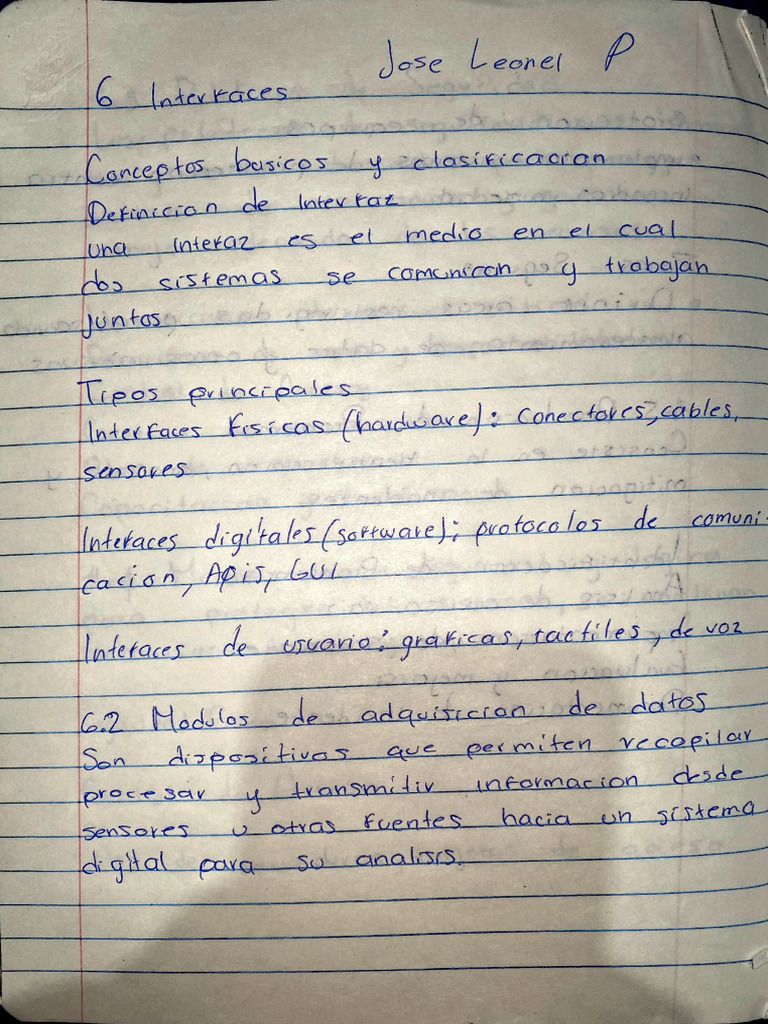 Jose Leonel P
6 Interfaces
Conceptos basicos y clasificacion
Definicion de Interfaz
una interaz es el medio en el cual
dos sistemas se comunican y trabajan
juntos
Tipos principales
Interfaces fisicas (hardware): conectores, cables,
sensores
Intefaces digitales (software); protocolos de comuni-
cacion, APis, GUI
Intefaces de usuario: graficas, tactiles, de voz
6.2 Modulos de adquisicion de datos
Son dispositivos que permiten recopilar
procesar y transmitir informacion desde
sensores u otras fuentes hacia un sistema
digital para su analisis.